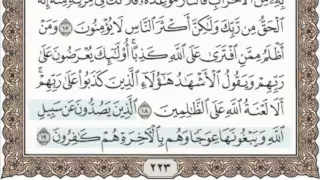 بِهِۦ مِنَ ٱلْأَحْزَابِ فَٱلنَّارُ مَوْعِدُهُۥ فَلَا تَكُ فِى مِرْيَةٍ مِّنْهُ إِنَّهُ
ٱلْحَقُّ مِن رَّبِّكَ وَلَـٰكِنَّ أَكْثَرَ ٱلنَّاسِ لَا يُؤْمِنُونَ ١٧ وَمَنْ
أَظْلَمُ مِمَّنِ ٱفْتَرَىٰ عَلَى ٱللَّهِ كَذِبًا أُو۟لَـٰٓئِكَ يُعْرَضُونَ عَلَىٰ
رَبِّهِمْ وَيَقُولُ ٱلْأَشْهَـٰدُ هَـٰٓؤُلَآءِ ٱلَّذِينَ كَذَبُوا۟ عَلَىٰ رَبِّهِمْ
أَلَا لَعْنَةُ ٱللَّهِ عَلَى ٱلظَّـٰلِمِينَ ١٨ ٱلَّذِينَ يَصُدُّونَ عَن سَبِيلِ
ٱللَّهِ وَيَبْغُونَهَا عِوَجًا وَهُم بِٱلْـَٔاخِرَةِ هُمْ كَـٰفِرُونَ ١٩
٢٢٣